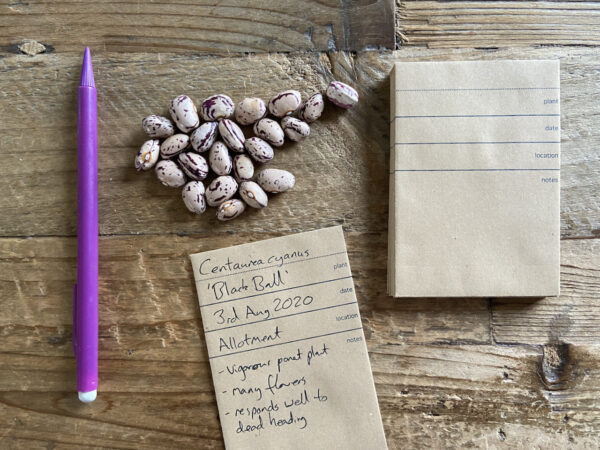 plant
date
location
notes
Centaurea cyanus
plant
'Black Ball'
date
3rd Aug 2020
location
Allotment
notes
- Vigorous
- many flowers
- responds well to
dead heading